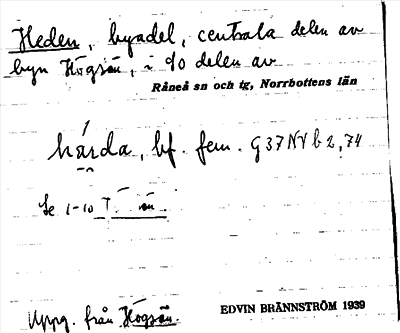 Heden, byadel, centrala delen av
byn Högsön, i ö delen av
Råneå sn och tg, Norrbottens län
bf. fem. G 37 NV b 2, 74
Se 1-10
Uppg. från Högsön.
EDVIN BRÄNNSTRÖM 1939